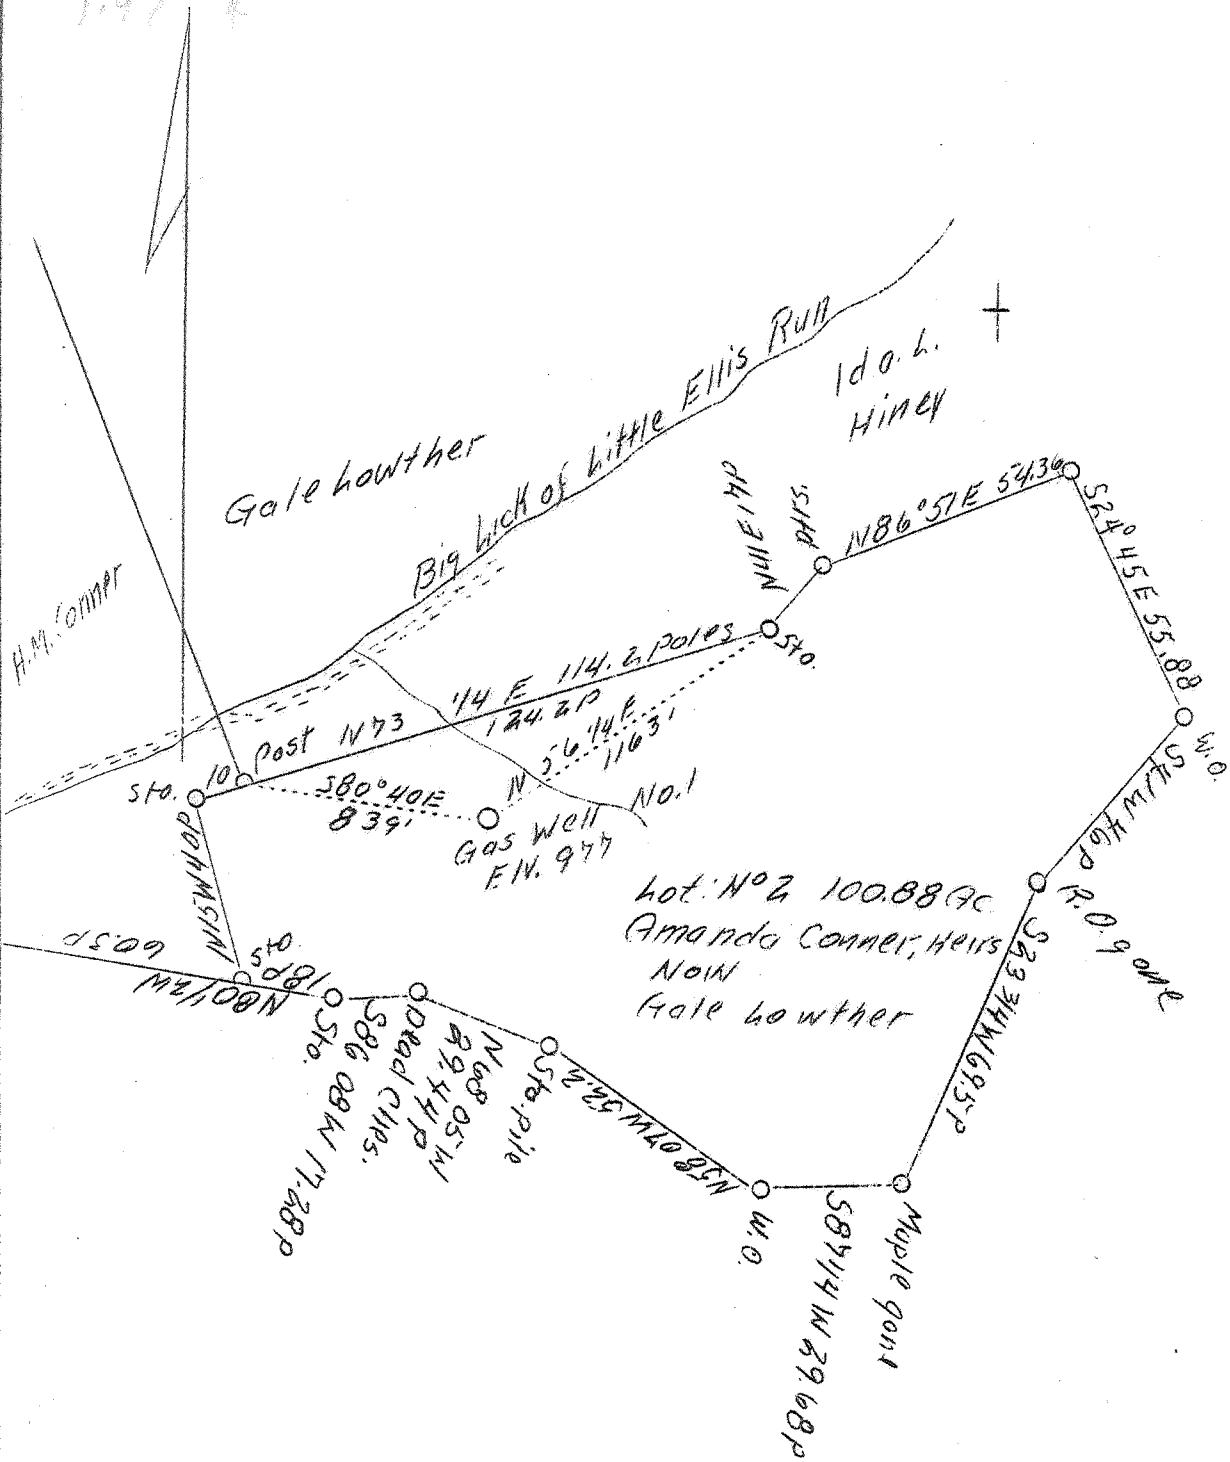 Gale Lowther
Big Lick of Little Ellis Run
Ida. L.
Hiney
H.M. Conner
N41E 14P
N86°57E 54.36
S24°45E 55.88
W.O.
S41W46P
R.O. gone
S23 3/4W 69.5P
Maple gone
S87 1/4 W 29.68P
W.O.
N58 07W 52.2
Sto. pile
N68 05W
29.44P
Dead Ches.
S86 08W 17.28P
Sto.
18P
N80 1/2W
Sto
60.3P
N15W40P
Sto.
10
Post N73 1/4 E 114.2 Poles
124.2P
Sto.
S80°40E
839'
N 56 1/4 E
1163'
Gas Well No.1
Elv. 977
Lot: No 2 100.88 Ac.
Amanda Conner, Heirs
Now
Gale Lowther